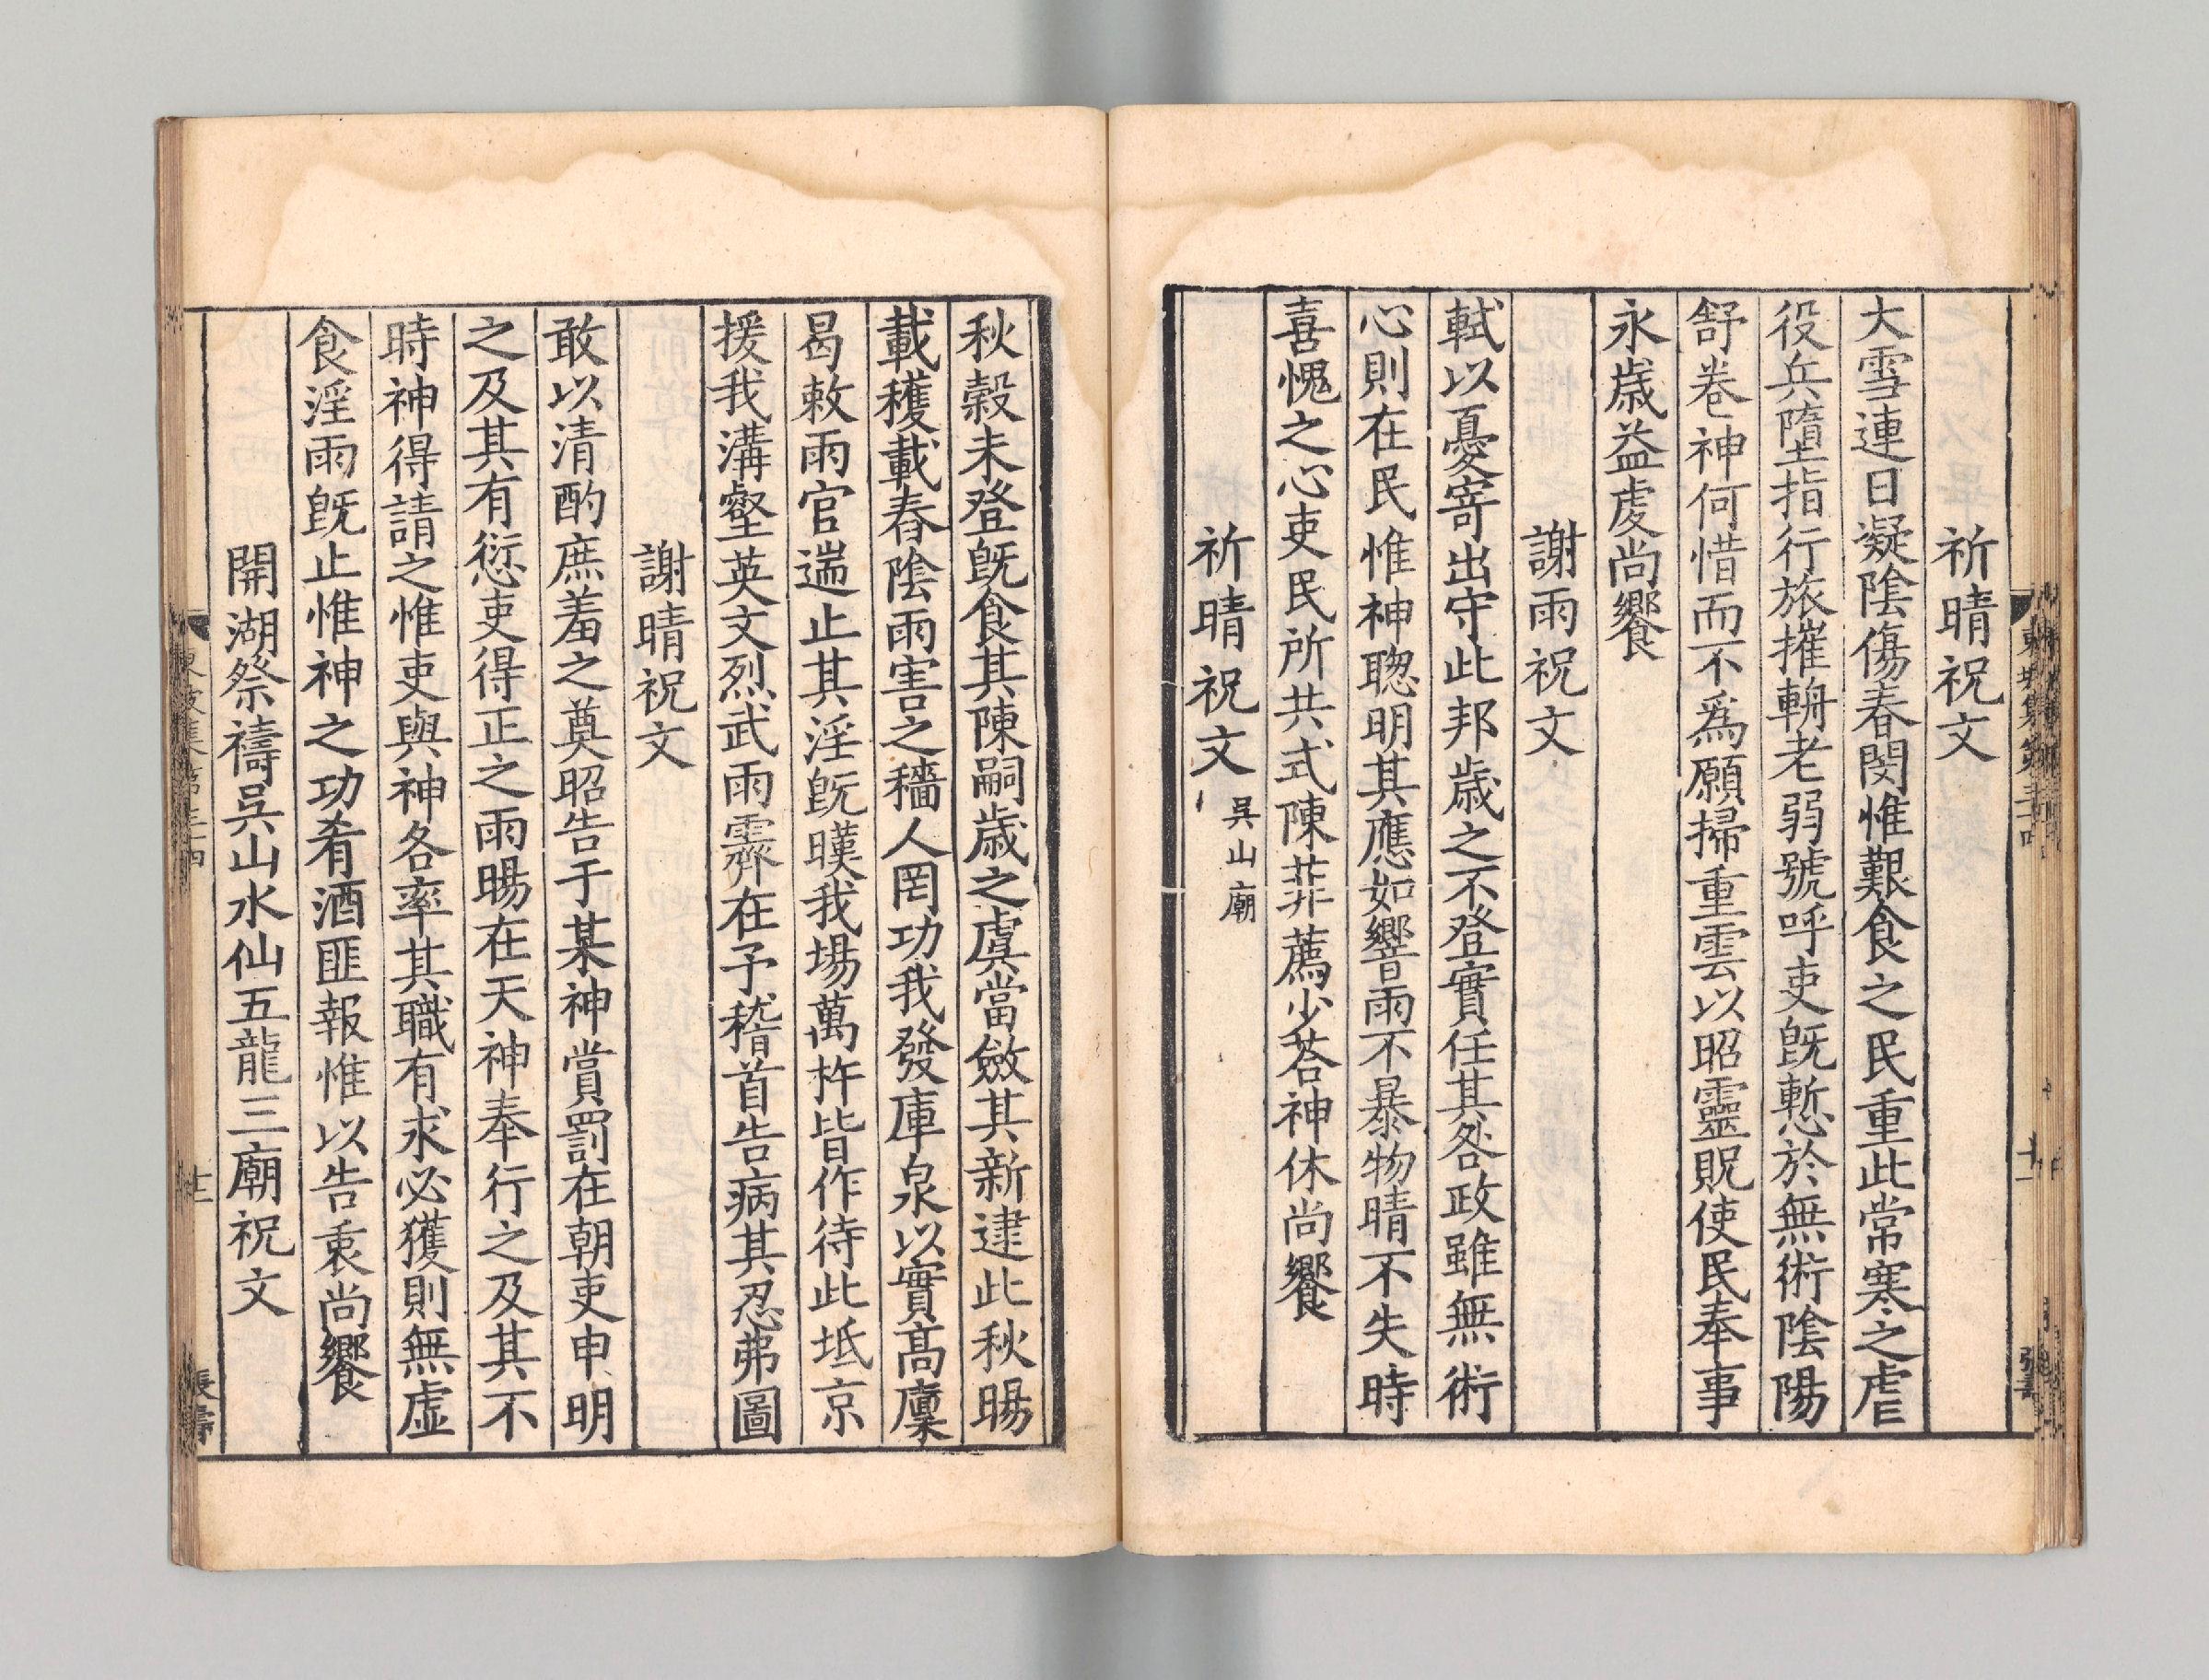 祈晴祝文
大雪連日凝陰傷春閔惟艱食之民重此常寒之虐
役兵墮指行旅摧輈老弱號呼吏旣慙於無術陰陽
舒卷神何惜而不爲願掃重雲以昭靈貺使民奉事
永歳益虔尚饗
謝雨祝文
軾以憂寄出守此邦歳之不登實任其咎政雖無術
心則在民惟神聦明其應如響雨不暴物晴不失時
喜愧之心吏民所共式陳菲薦少荅神休尚饗
祈晴祝文 吳山廟
秋糓未登旣食其陳嗣歳之虞當斂其新逮此秋暘
載穫載舂陰雨害之穡人罔功我發庫泉以實髙廩
曷敕雨官遄止其淫旣暵我場萬杵皆作待此坻京
援我溝壑英文烈武雨霽在予稽首告病其忍弗圖
謝晴祝文
敢以清酌庶羞之奠昭告于某神賞罰在朝吏申明
之及其有愆吏得正之雨暘在天神奉行之及其不
時神得請之惟吏與神各率其職有求必獲則無虛
食淫雨旣止惟神之功肴酒匪報惟以告衷尚饗
開湖祭禱吳山水仙五龍三廟祝文